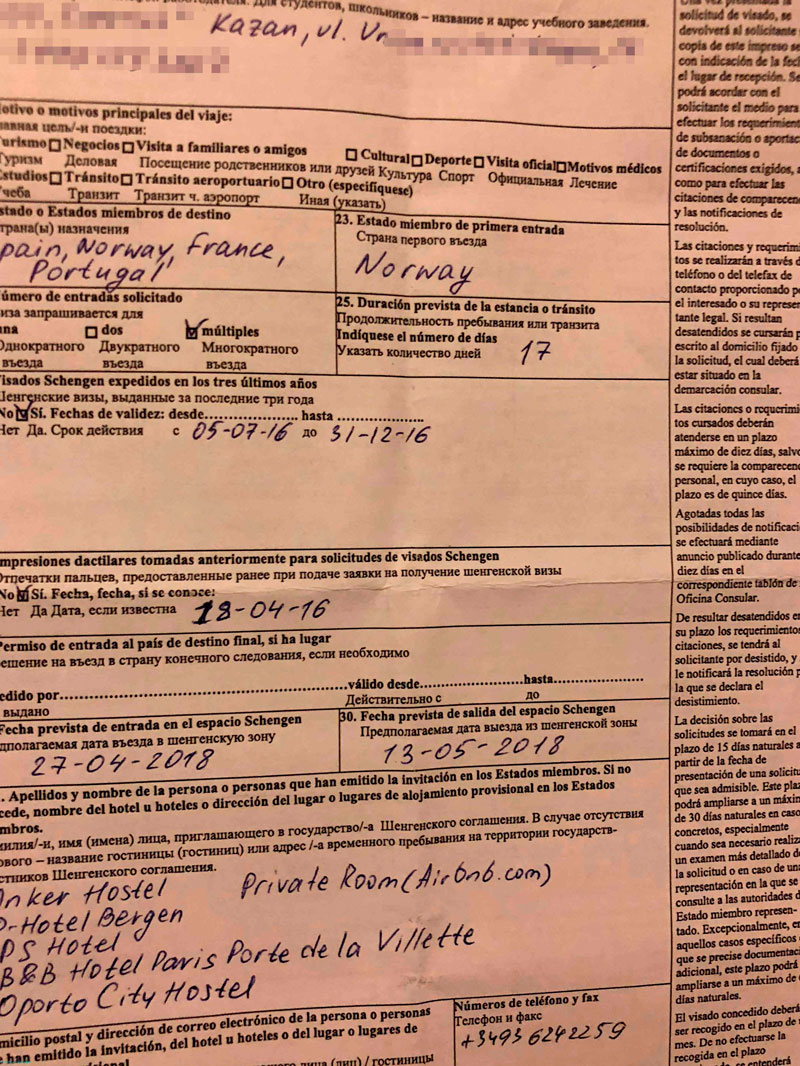 работодателя. Для студентов, школьников – название и адрес учебного заведения.
Kazan, ul.
otivo o motivos principales del viaje:
лавная цель/-и поездки:
urismo Negocios Visita a familiares o amigos Cultural Deporte Visita oficial Motivos médicos
уризм Деловая Посещение родственников или друзей Культура Спорт Официальная Лечение
studios Tránsito Tránsito aeroportuario Otro (especifíquese)
чеба Транзит Транзит ч. аэропорт Иная (указать)
stado o Estados miembros de destino
трана(ы) назначения
pain, Norway, France,
Portugal
23. Estado miembro de primera entrada
Страна первого въезда
Norway
úmero de entradas solicitado
иза запрашивается для
una dos múltiples
Однократного Двукратного Многократного
въезда въезда въезда
25. Duración prevista de la estancia o tránsito
Продолжительность пребывания или транзита
Indíquese el número de días
Указать количество дней 17
isados Schengen expedidos en los tres últimos años
Шенгенские визы, выданные за последние три года
No Sí. Fechas de validez: desde..................... hasta ...................
Нет Да. Срок действия с 05-07-16 до 31-12-16
mpresiones dactilares tomadas anteriormente para solicitudes de visados Schengen
Отпечатки пальцев, предоставленные ранее при подаче заявки на получение шенгенской визы
No Sí. Fecha, fecha, si se conoce:
Нет Да Дата, если известна 18-04-16
ermiso de entrada al país de destino final, si ha lugar
решение на въезд в страну конечного следования, если необходимо
edido por........................válido desde........................hasta.....................
выдано Действительно с до
Fecha prevista de entrada en el espacio Schengen
дполагаемая дата въезда в шенгенскую зону
27-04-2018
30. Fecha prevista de salida del espacio Schengen
Предполагаемая дата выезда из шенгенской зоны
13-05-2018
. Apellidos y nombre de la persona o personas que han emitido la invitación en los Estados miembros. Si no
cede, nombre del hotel u hoteles o dirección del lugar o lugares de alojamiento provisional en los Estados
mbros.
милия/-и, имя (имена) лица, приглашающего в государство/-а Шенгенского соглашения. В случае отсутствия
ового – название гостиницы (гостиниц) или адрес /-а временного пребывания на территории государств-
стников Шенгенского соглашения.
nker Hostel Private Room (Airbnb.com)
P-Hotel Bergen
PS Hotel
B&B Hotel Paris Porte de la Villette
Oporto City Hostel
micilio postal y dirección de correo electrónico de la persona o personas
e han emitido la invitación, del hotel u hoteles o del lugar o lugares de
лица (лиц) / гостиницы
Números de teléfono y fax
Телефон и факс
+34936242259
solicitud de visado, se
devolverá al solicitante
copia de este impreso se
con indicación de la fech
el lugar de recepción. Se
podrá acordar con el
solicitante el medio para
efectuar los requerimien
de subsanación o aportac
de documentos o
certificaciones exigidos, a
como para efectuar las
citaciones de comparecenc
y las notificaciones de
resolución.
Las citaciones y requerimi
tos se realizarán a través d
teléfono o del telefax de
contacto proporcionado po
el interesado o su represen
tante legal. Si resultan
desatendidos se cursarán p
escrito al domicilio fijado
la solicitud, el cual deberá
estar situado en la
demarcación consular.
Las citaciones o requerimi
tos cursados deberán
atenderse en un plazo
máximo de diez días, salvo
se requiere la comparecenc
personal, en cuyo caso, el
plazo es de quince días.
Agotadas todas las
posibilidades de notificació
se efectuará mediante
anuncio publicado durante
diez días en el
correspondiente tablón de
Oficina Consular.
De resultar desatendidos en
su plazo los requerimientos
citaciones, se tendrá al
solicitante por desistido, y
le notificará la resolución p
la que se declara el
desistimiento.
La decisión sobre las
solicitudes se tomará en el
plazo de 15 días naturales a
partir de la fecha de
presentación de una solicitu
que sea admisible. Este plaz
podrá ampliarse a un máxim
de 30 días naturales en caso
concretos, especialmente
cuando sea necesario realiza
un examen más detallado de
la solicitud o en caso de una
representación en la que se
consulte a las autoridades d
Estado miembro represen-
tado. Excepcionalmente, en
aquellos casos específicos e
que se precise documentaci
adicional, este plazo podrá
ampliarse a un máximo de 6
días naturales.
El visado concedido deberá
ser recogido en el plazo de
mes. De no efectuarse la
recogida en el plazo